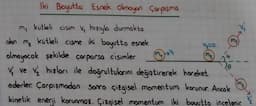 İki Boyutta Esnek Olmayan Çarpışma
m₁ kütleli cisim v₁ hızıyla durmakta
olan m₂ kütleli cisme iki boyutta esnek
olmayacak şekilde çarparsa cisimler
v₁' ve v₂' hızları ile doğrultularını değiştirerek hareket
ederler. Çarpışmadan sonra çizgisel momentum korunur. Ancak
kinetik enerji korunmaz. Çizgisel momentum iki boyutta incelenir.